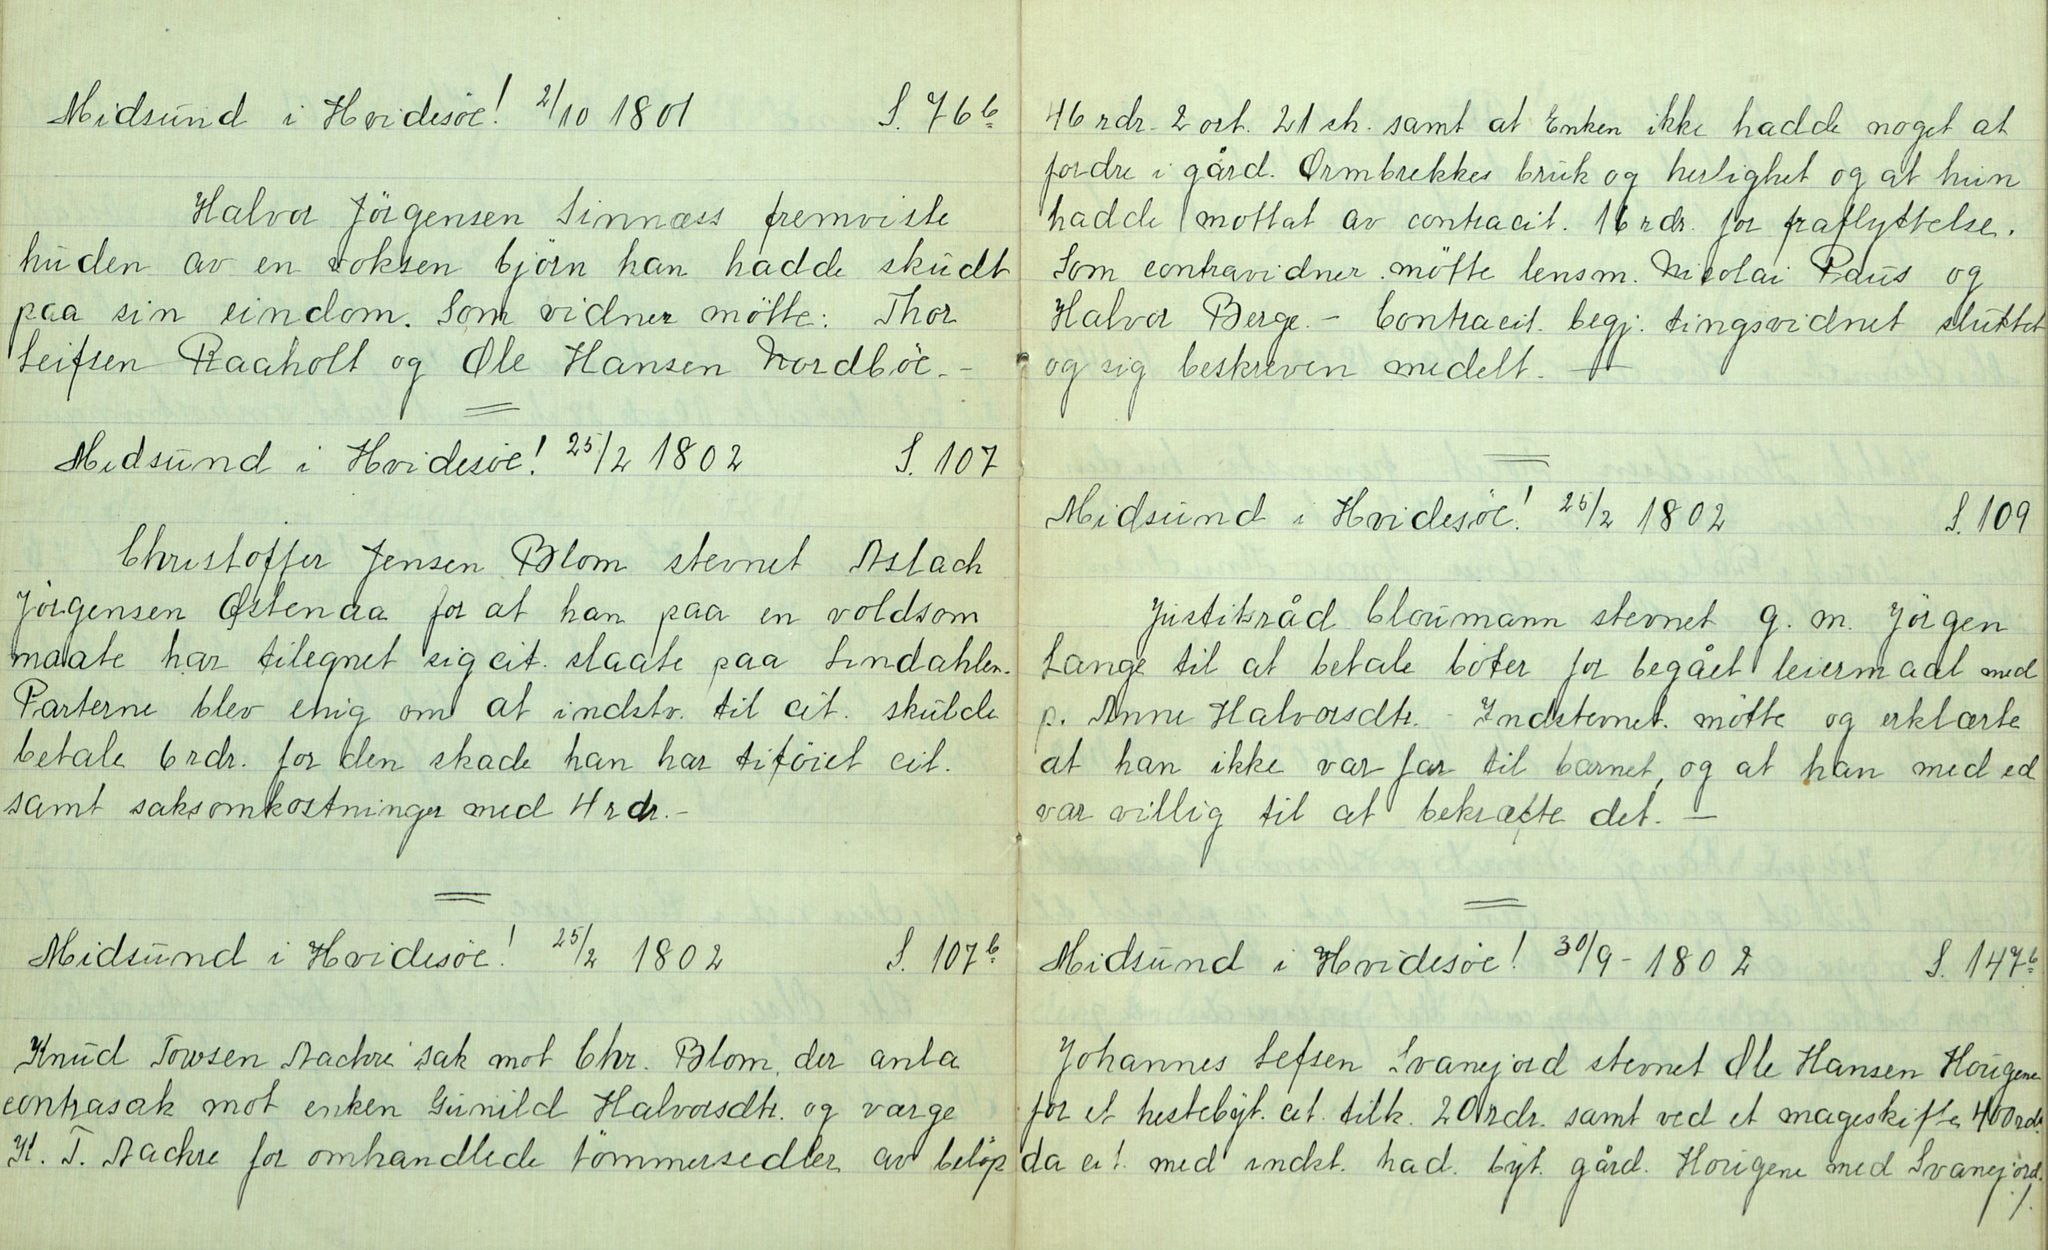 Midsund i Hvidesøe! 2/10 1801 S. 76b
Halvor Jörgensen Sinnæss fremviste
huden av en voksen björn han hadde skudt
paa sin eindom. Som vidner mötte: Thor
Leifsen Raaholt og Øle Hansen Nordböe. –
Midsund i Hvidesöe! 25/2 1802 S. 107
Christoffer Jensen Blom stevnet Aslach
Jörgensen Østenaa for at han paa en voldsom
maate har tilegnet sig cit. slaate paa Lindahlen.
Parterne blev enig om at indstv. til cit. skulde
betale 6 rdr. for den skade han har tiföiet cit.
samt saksomkostninger med 4 rdr. –
Midsund i Hvidesöe! 25/2 1802 S. 107b
Knud Tovsen Aachre sak mot Chr. Blom, der anla
contrasak mot enken Gunild Halvorsdtr. og værge
K. T. Aachre for omhandlede tömmersedler av belöp
46 rdr. 2 ort. 21 sk. samt at Enken ikke hadde noget at
fordre i gård. Ørmbrekkes bruk og herlighet og at hun
hadde mottat av contracit. 16 rdr. for fraflyttelse.
Som contravidner mötte lensm. Nicolai Paus og
Halvor Berge. – Contracit. begj. tingsvidnet sluttet
og sig beskreven medelt. –
Midsund i Hvidesöe! 25/2 1802 S. 109
Justitsråd Cloumann stevnet g. m. Jörgen
Lange til at betale böter for begået leiermaal med
p. Anne Halvorsdtr. – Indstevnet mötte og erklærte
at han ikke var far til barnet, og at han med ed
var villig til at bekræfte det. –
Midsund i Hvidesöe! 30/9 – 1802 S. 147b
Johannes Lefsen Svanejord stevnet Øle Hansen Hougene
for et hestebyt. cit. tilk. 20 rdr. samt ved et mageskifte 400 rdr.
da cit. med indst. had. byt. gård. Hougene med Svanejord.
/.